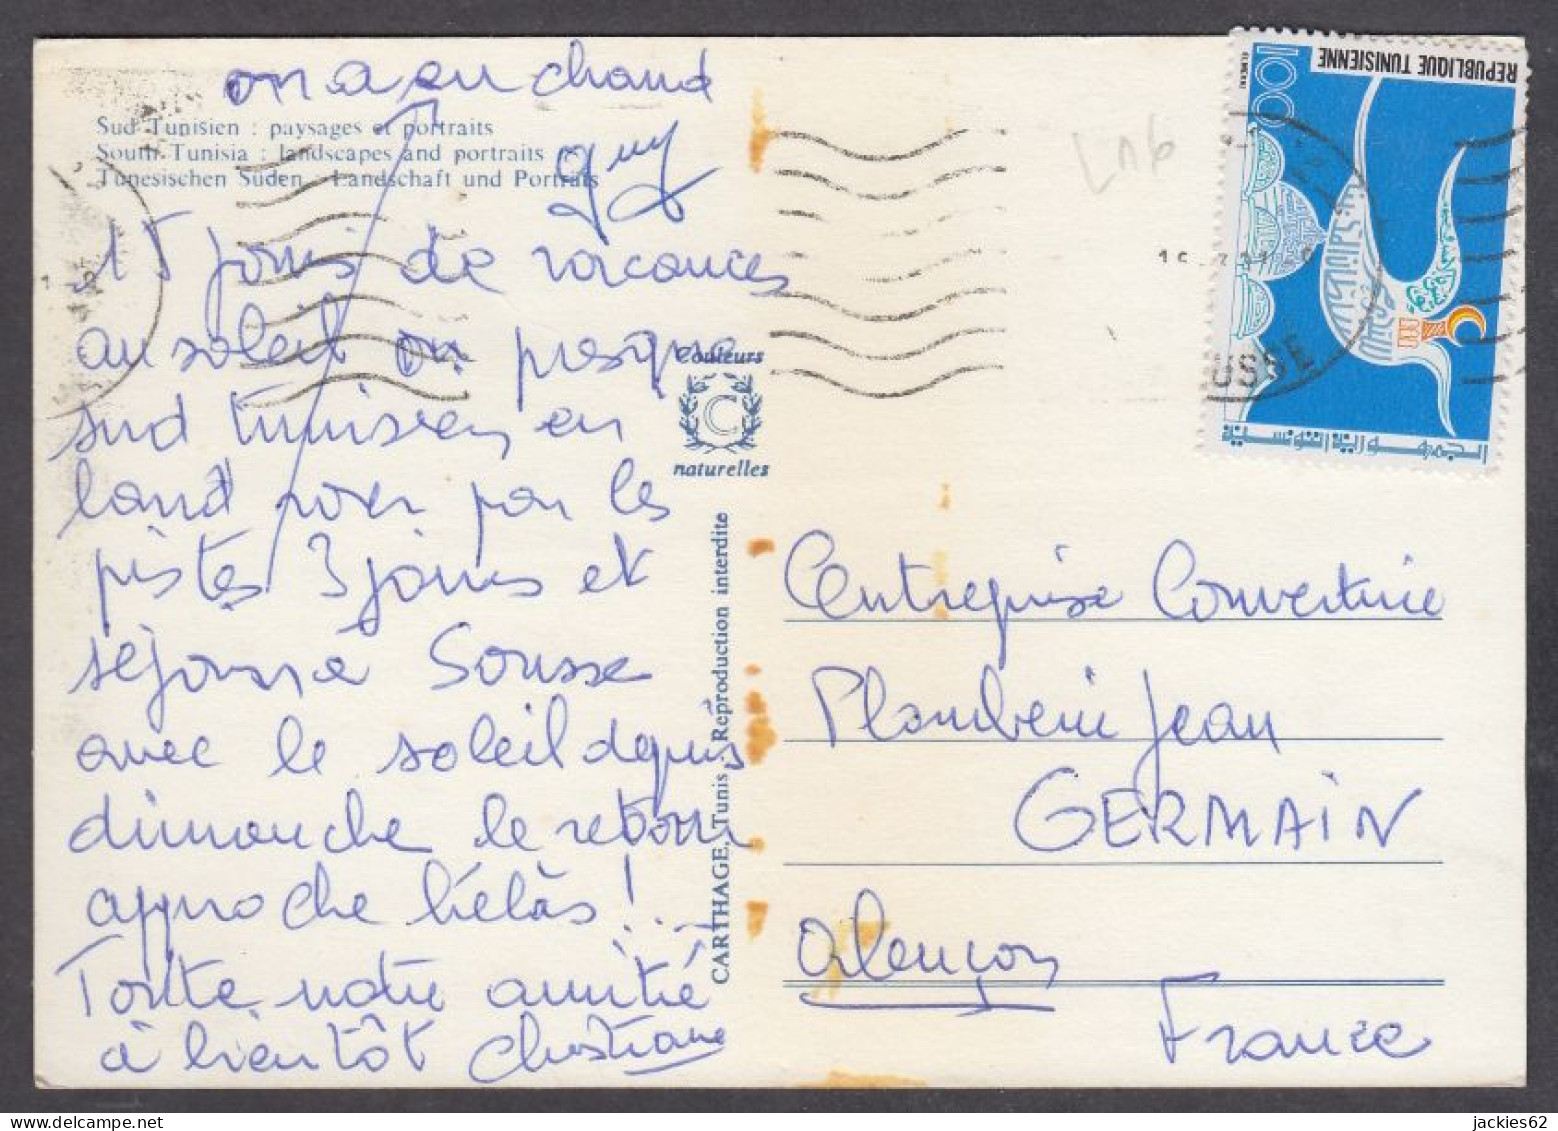 on a eu chaud
Guy
Sud Tunisien : paysages et portraits
South Tunisia : landscapes and portraits
Tunesischen Süden : Landschaft und Portraits
15 jours de vacances
au soleil ou presque
sud tunisien en
land rover par les
pistes 3 jours et
séjour à Sousse
avec le soleil depuis
dimanche le retour
approche hélas !...
Toute notre amitié
à bientôt Christiane
Couleurs
C
naturelles
CARTHAGE, Tunis - Reproduction interdite
REPUBLIQUE TUNISIENNE
100
الجمهورية التونسية
USSE
Entreprise Couverture
Plomberie Jean
GERMAIN
Alençon
France
jackies62